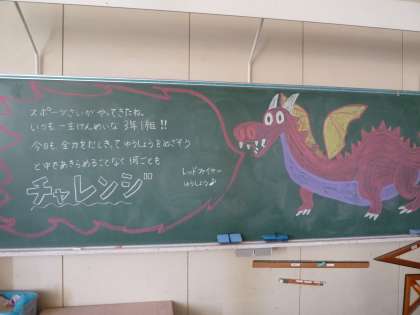 スポーツさいがやってきたね。
いつも一生けんめいな3年1組!!
今日も全力をだしきってゆうしょうをめざそう
と中であきらめることなく何ごとも
チャレンジ!!!
レッドファイヤー
ゆうしょう♪